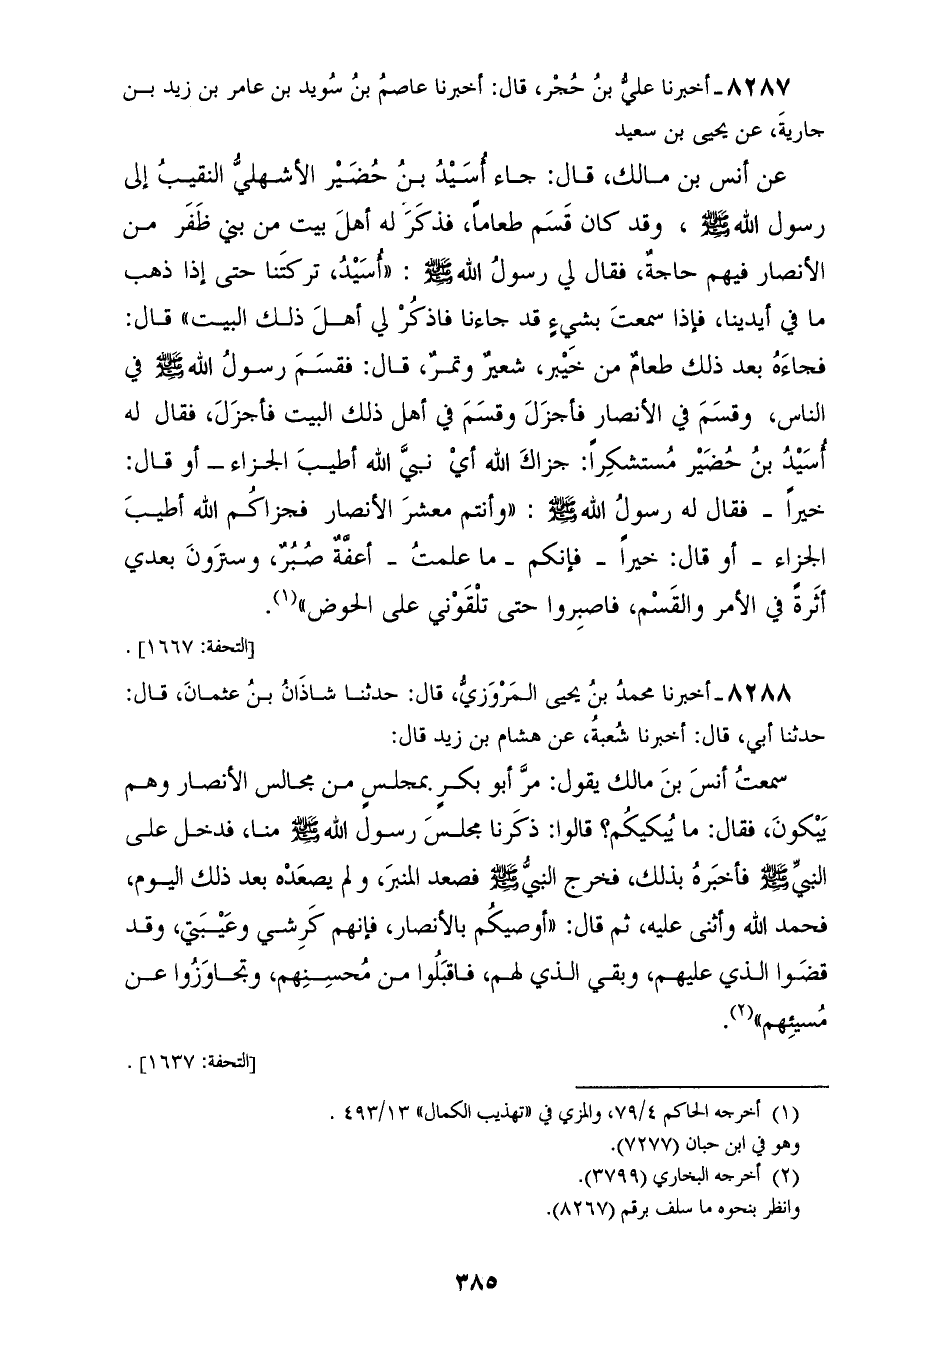 ٨٢٨٧ـ أخبرنا عليُّ بنُ حُجْر، قال: أخبرنا عاصمُ بنُ سُويد بن عامر بن زيد بـن
جاريةَ، عن يحيى بن سعيد
عن أنس بن مـالك، قـال: جـاء أُسَـيْدُ بـنُ حُضَـيْر الأشـهليُّ النقيـبُ إلى
رسول الله ﷺ ، وقد كان قَسَم طعاماً، فذكَرَ له أهلَ بيت من بني ظَفَر مـن
الأنصار فيهم حاجةٌ، فقال لي رسولُ الله ﷺ : «أُسَيْدُ، تركتَنا حتى إذا ذهب
ما في أيدينا، فإذا سمعتَ بشيءٍ قد جاءنا فاذكُرْ لي أهـلَ ذلـك البيـت» قـال:
فجاءَهُ بعد ذلك طعامٌ من خَيْبر، شعيرٌ وتمرٌ، قـال: فقسَـمَ رسـولُ الله ﷺ في
الناس، وقسَمَ في الأنصار فأجزَلَ وقسَمَ في أهل ذلك البيت فأجزَلَ، فقال له
أُسَيْدُ بنُ حُضَيْر مُستشكِراً: جزاكَ الله أيْ نبيَّ الله أطيـبَ الجـزاء ـ أو قـال:
خيراً ـ فقال له رسولُ الله ﷺ : «وأنتم معشرَ الأنصار فجزاكُـم الله أطيـبَ
الجزاء ـ أو قال: خيراً ـ فإنكم ـ ما علمتُ ـ أعفَّةٌ صُبُرٌ، وسترَونَ بعدي
أثَرةً في الأمر والقَسْم، فاصبِروا حتى تلْقَوْني على الحوض»(١).
[التحفة: ١٦٦٧] .
٨٢٨٨ـ أخبرنا محمدُ بنُ يحيى المَرْوَزيُّ، قال: حدثنـا شـاذَانُ بـنُ عثمـانَ، قـال:
حدثنا أبي، قال: أخبرنا شُعبةُ، عن هشام بن زيد قال:
سمعتُ أنسَ بنَ مالك يقول: مرَّ أبو بكـرٍ بمجلـسٍ مـن مجـالس الأنصـار وهـم
يَبْكونَ، فقال: ما يُبكيكُم؟ قالوا: ذكَرنا مجلـسَ رسـول الله ﷺ منـا، فدخـل علـى
النبيِّ ﷺ فأخبَرهُ بذلك، فخرج النبيُّ ﷺ فصعد المنبرَ، و لم يصعَدْه بعد ذلك اليـوم،
فحمد الله وأثنى عليه، ثم قال: «أوصيكُم بالأنصار، فإنهم كَرِشـي وعَيْـبَتي، وقـد
قضَـوا الـذي عليهـم، وبقـي الـذي لهـم، فـاقبَلُوا مـن مُحسـنِهم، وتجـاوَزُوا عـن
مُسيئِهم»(٢).
[التحفة: ١٦٣٧] .
(١) أخرجه الحاكم ٧٩/٤، والمزي في «تهذيب الكمال» ٤٩٣/١٣ .
وهو في ابن حبان (٧٢٧٧).
(٢) أخرجه البخاري (٣٧٩٩).
وانظر بنحوه ما سلف برقم (٨٢٦٧).
٣٨٥